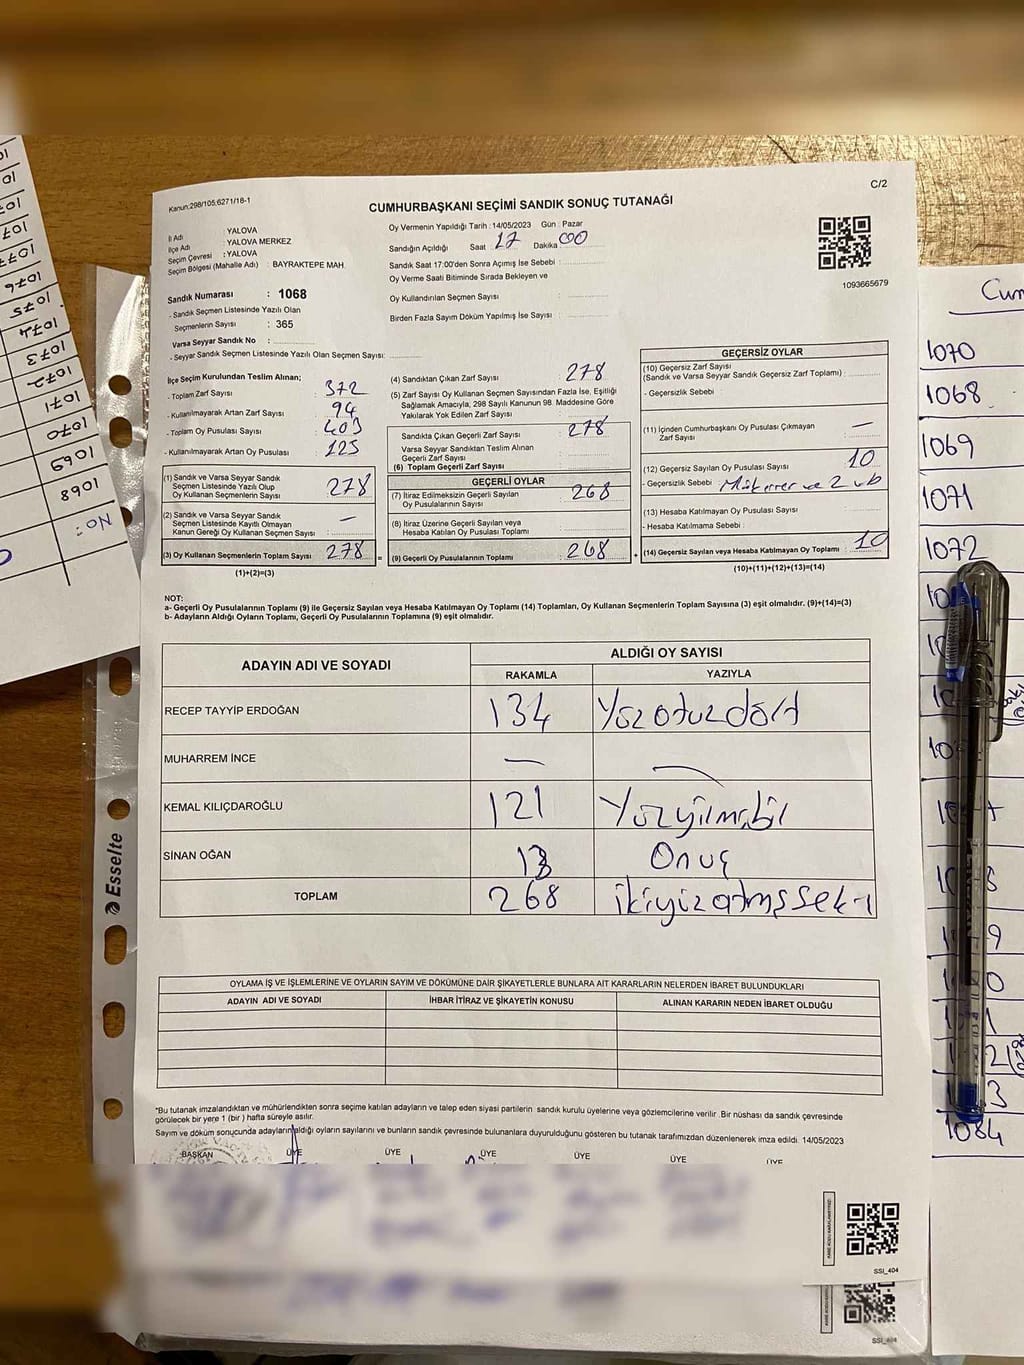 C/2
Kanun:298/105;6271/18-1
CUMHURBAŞKANI SEÇİMİ SANDIK SONUÇ TUTANAĞI
İl Adı : YALOVA
İlçe Adı : YALOVA MERKEZ
Seçim Çevresi : YALOVA
Seçim Bölgesi (Mahalle Adı) : BAYRAKTEPE MAH.
Sandık Numarası : 1068
- Sandık Seçmen Listesinde Yazılı Olan
Seçmenlerin Sayısı : 365
Varsa Seyyar Sandık No :
- Seyyar Sandık Seçmen Listesinde Yazılı Olan Seçmen Sayısı:
Oy Vermenin Yapıldığı Tarih : 14/05/2023 Gün : Pazar
Sandığın Açıldığı Saat 17 Dakika 00
Sandık Saat 17:00'den Sonra Açılmış İse Sebebi :
Oy Verme Saati Bitiminde Sırada Bekleyen ve
Oy Kullandırılan Seçmen Sayısı :
Birden Fazla Sayım Döküm Yapılmış İse Sayısı :
1093665679
İlçe Seçim Kurulundan Teslim Alınan;
- Toplam Zarf Sayısı : 372
- Kullanılmayarak Artan Zarf Sayısı : 94
- Toplam Oy Pusulası Sayısı : 403
- Kullanılmayarak Artan Oy Pusulası : 125
(1) Sandık ve Varsa Seyyar Sandık
Seçmen Listesinde Yazılı Olup
Oy Kullanan Seçmenlerin Sayısı : 278
(2) Sandık ve Varsa Seyyar Sandık
Seçmen Listesinde Kayıtlı Olmayan
Kanun Gereği Oy Kullanan Seçmen Sayısı : —
(3) Oy Kullanan Seçmenlerin Toplam Sayısı : 278
(1)+(2)=(3)
(4) Sandıktan Çıkan Zarf Sayısı : 278
(5) Zarf Sayısı Oy Kullanan Seçmen Sayısından Fazla İse, Eşitliği
Sağlamak Amacıyla, 298 Sayılı Kanunun 98. Maddesine Göre
Yakılarak Yok Edilen Zarf Sayısı :
Sandıkta Çıkan Geçerli Zarf Sayısı : 278
Varsa Seyyar Sandıktan Teslim Alınan
Geçerli Zarf Sayısı :
(6) Toplam Geçerli Zarf Sayısı :
GEÇERLİ OYLAR
(7) İtiraz Edilmeksizin Geçerli Sayılan : 268
Oy Pusulalarının Sayısı
(8) İtiraz Üzerine Geçerli Sayılan veya
Hesaba Katılan Oy Pusulası Toplamı :
(9) Geçerli Oy Pusulalarının Toplamı : 268
GEÇERSİZ OYLAR
(10) Geçersiz Zarf Sayısı
(Sandık ve Varsa Seyyar Sandık Geçersiz Zarf Toplamı) :
- Geçersizlik Sebebi :
(11) İçinden Cumhurbaşkanı Oy Pusulası Çıkmayan
Zarf Sayısı : —
(12) Geçersiz Sayılan Oy Pusulası Sayısı : 10
- Geçersizlik Sebebi : Mükerrer ve 2 vb
(13) Hesaba Katılmayan Oy Pusulası Sayısı :
- Hesaba Katılmama Sebebi :
(14) Geçersiz Sayılan veya Hesaba Katılmayan Oy Toplamı : 10
(10)+(11)+(12)+(13)=(14)
NOT:
a- Geçerli Oy Pusulalarının Toplamı (9) ile Geçersiz Sayılan veya Hesaba Katılmayan Oy Toplamı (14) Toplamları, Oy Kullanan Seçmenlerin Toplam Sayısına (3) eşit olmalıdır. (9)+(14)=(3)
b- Adayların Aldığı Oyların Toplamı, Geçerli Oy Pusulalarının Toplamına (9) eşit olmalıdır.
ADAYIN ADI VE SOYADI ALDIĞI OY SAYISI
RAKAMLA YAZIYLA
RECEP TAYYİP ERDOĞAN 134 Yüzotuzdört
MUHARREM İNCE — —
KEMAL KILIÇDAROĞLU 121 Yüzyirmibir
SİNAN OĞAN 13 Onüç
TOPLAM 268 ikiyüzatmışseki
OYLAMA İŞ VE İŞLEMLERİNE VE OYLARIN SAYIM VE DÖKÜMÜNE DAİR ŞİKAYETLERLE BUNLARA AİT KARARLARIN NELERDEN İBARET BULUNDUKLARI
ADAYIN ADI VE SOYADI İHBAR İTİRAZ VE ŞİKAYETİN KONUSU ALINAN KARARIN NEDEN İBARET OLDUĞU
*Bu tutanak imzalandıktan ve mühürlendikten sonra seçime katılan adayların ve talep eden siyasi partilerin sandık kurulu üyelerine veya gözlemcilerine verilir .Bir nüshası da sandık çevresinde
görülecek bir yere 1 (bir ) hafta süreyle asılır.
Sayım ve döküm sonucunda adayların aldığı oyların sayılarını ve bunların sandık çevresinde bulunanlara duyurulduğunu gösteren bu tutanak tarafımızdan düzenlenerek imza edildi. 14/05/2023
BAŞKAN ÜYE ÜYE ÜYE ÜYE ÜYE ÜYE
SSI_404
SSI_404
Esselte
No:
1068
1069
1070
1071
1072
1073
1074
1075
1076
Cum
1070
1068
1069
1071
1072
1084